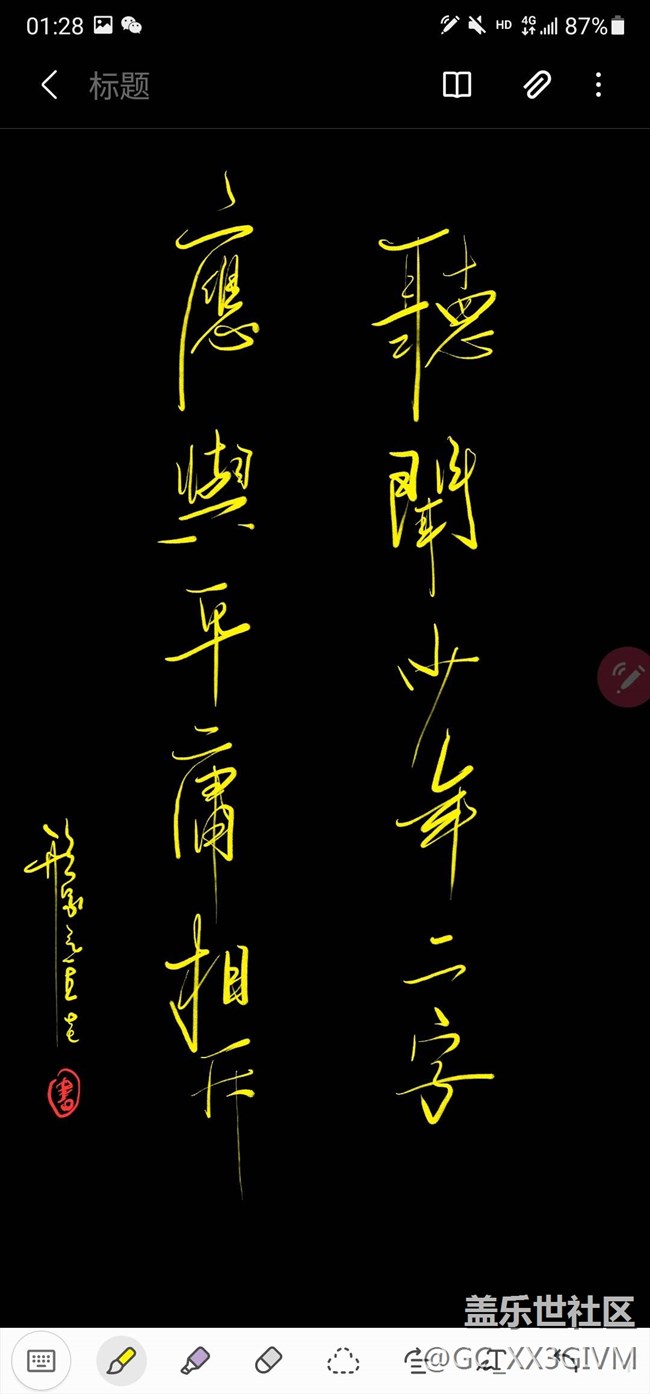 01:28
HD 4G 87%
标题
聽聞少年二字
應與平庸相斥
書
盖乐世社区
@GC_XX3GIVM